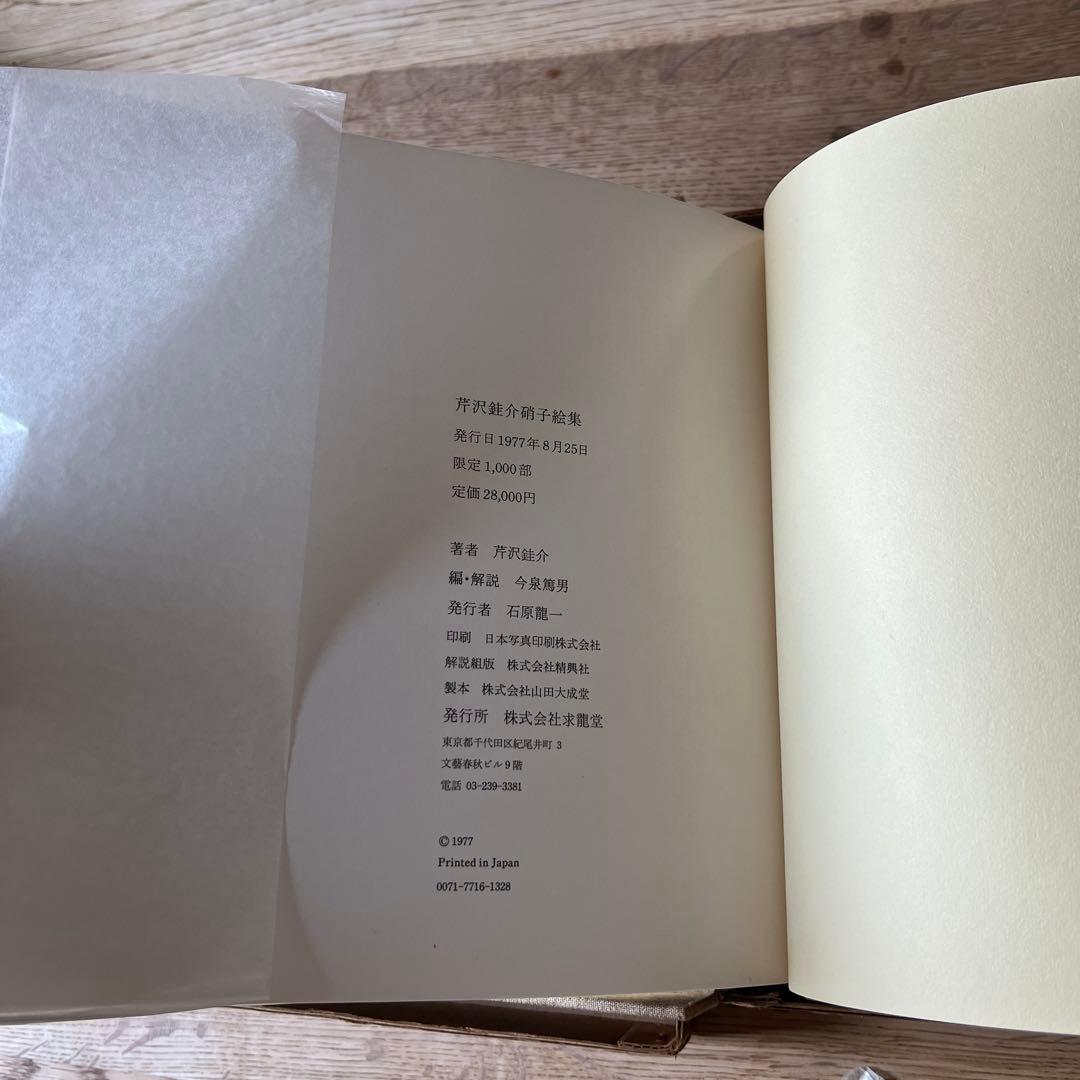 芹沢銈介硝子絵集
発行日 1977年8月25日
限定 1,000部
定価 28,000円
著者 芹沢銈介
編・解説 今泉篤男
発行者 石原龍一
印刷 日本写真印刷株式会社
解説組版 株式会社精興社
製本 株式会社山田大成堂
発行所 株式会社求龍堂
東京都千代田区紀尾井町 3
文藝春秋ビル 9階
電話 03-239-3381
© 1977
Printed in Japan
0071-7716-1328